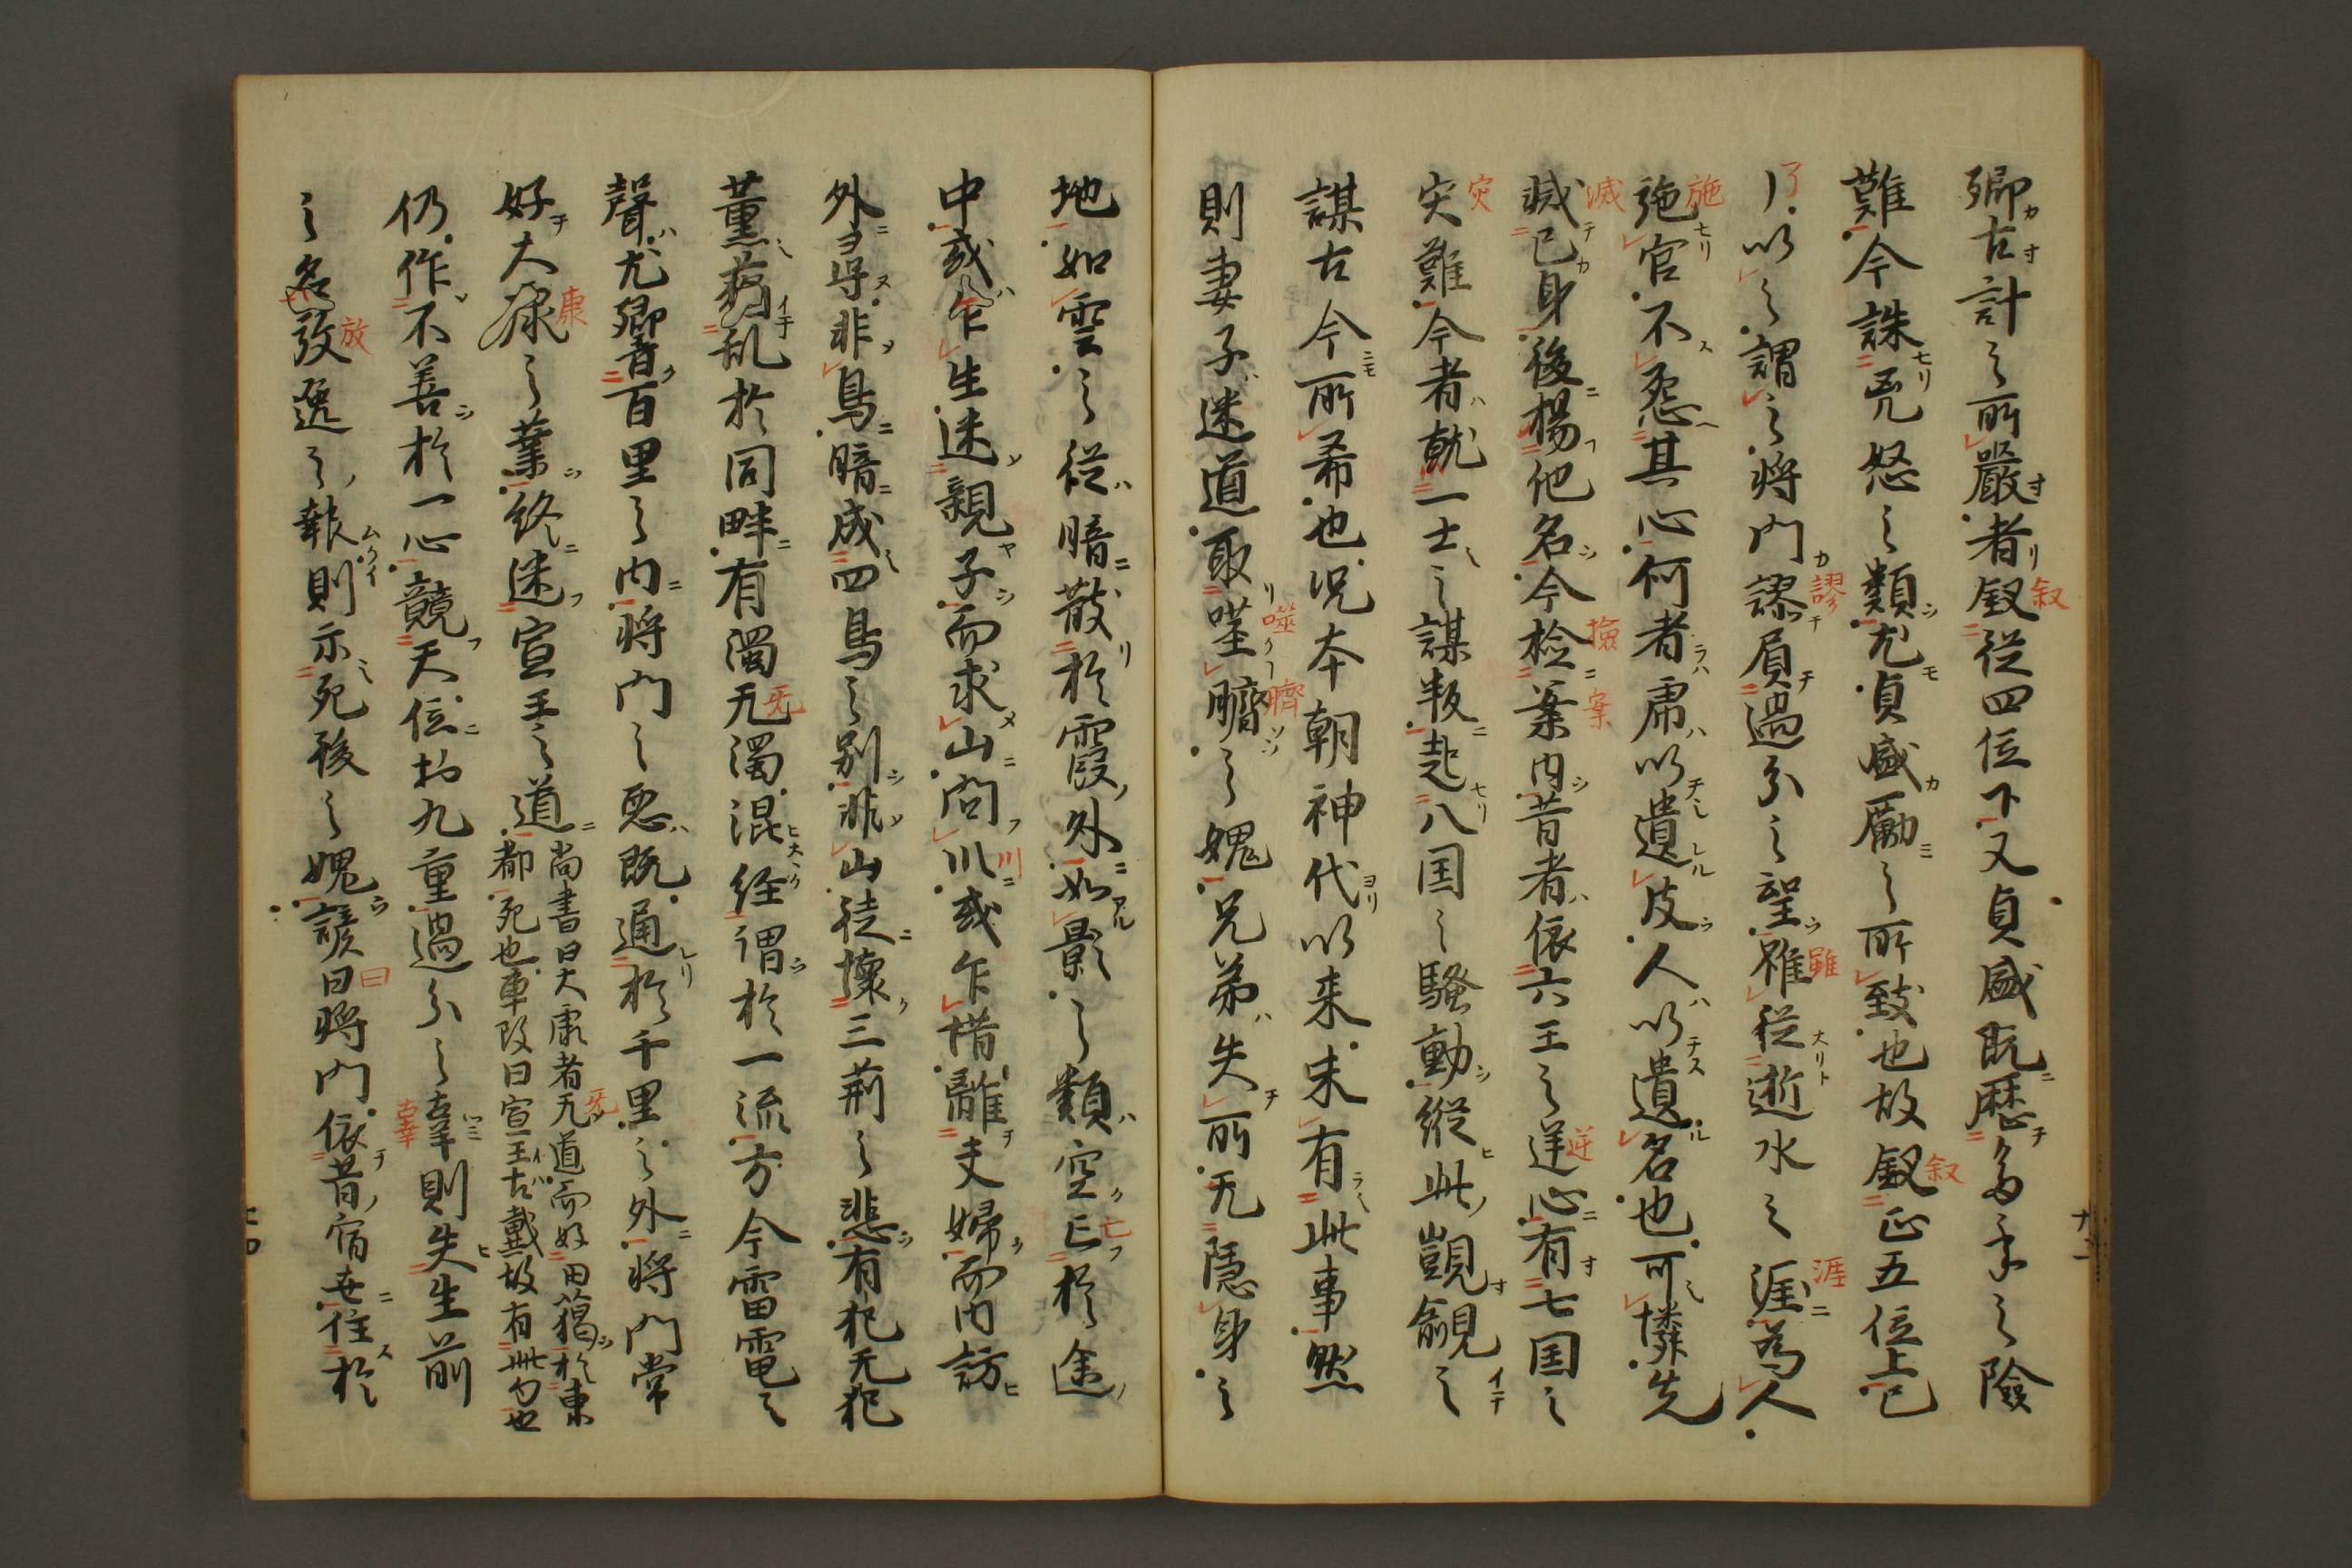 卿古計之所嚴者釼從四位下又貞盛既歷多年之險
難今誅兇怒之類尤貞盛勵之所致也故釼正五位上已
了以之謂之将門謬負過分之望雖從逝水之涯為人
施官不怨其心何者虎以遺皮人以遺名也可憐先
滅己身後楊他名今検案内昔者依六王之逆心有七国之
災難今者就一士之謀叛起八国之騒動縦此覬覦之
謀古今所希也况夲朝神代以来未有此事然
則妻子迷道取噬臍之媿兄弟失所无隠身之
地如雲之從暗散於霞外如影之類空亡於途
中或乍生迷親子而求山問川或乍惜離夫婦而内訪
外尋非鳥暗成四鳥之別非山徒懐三荊之悲有犯无犯
薫蕕乱於同畔有濁无濁混経渭於一流方今雷電之
聲尤響百里之内将門之悪既通於千里之外将門常
好大康之業終迷宣王之道
尚書曰大康者无道而好田獦於東
都死也車攻曰宣王古戴故有此句也
仍作不善於一心競天位於九重過分之辜則失生前
之名放逸之報則示死後之媿諺曰将門依昔宿世住於